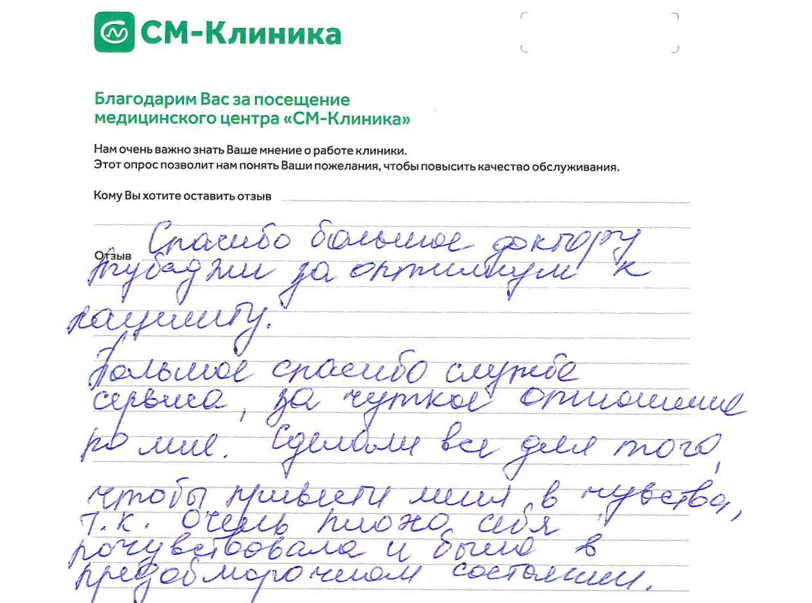 СМ-Клиника
Благодарим Вас за посещение
медицинского центра «СМ-Клиника»
Нам очень важно знать Ваше мнение о работе клиники.
Этот опрос позволит нам понять Ваши пожелания, чтобы повысить качество обслуживания.
Кому Вы хотите оставить отзыв
Отзыв
Спасибо большое доктору
за оптимизм к
пациенту.
Большое спасибо службе
сервиса, за чуткое отношение
ко мне. Сделали все для того,
чтобы привести меня в чувства,
т.к. очень плохо себя
почувствовала и была в
предобморочном состоянии.